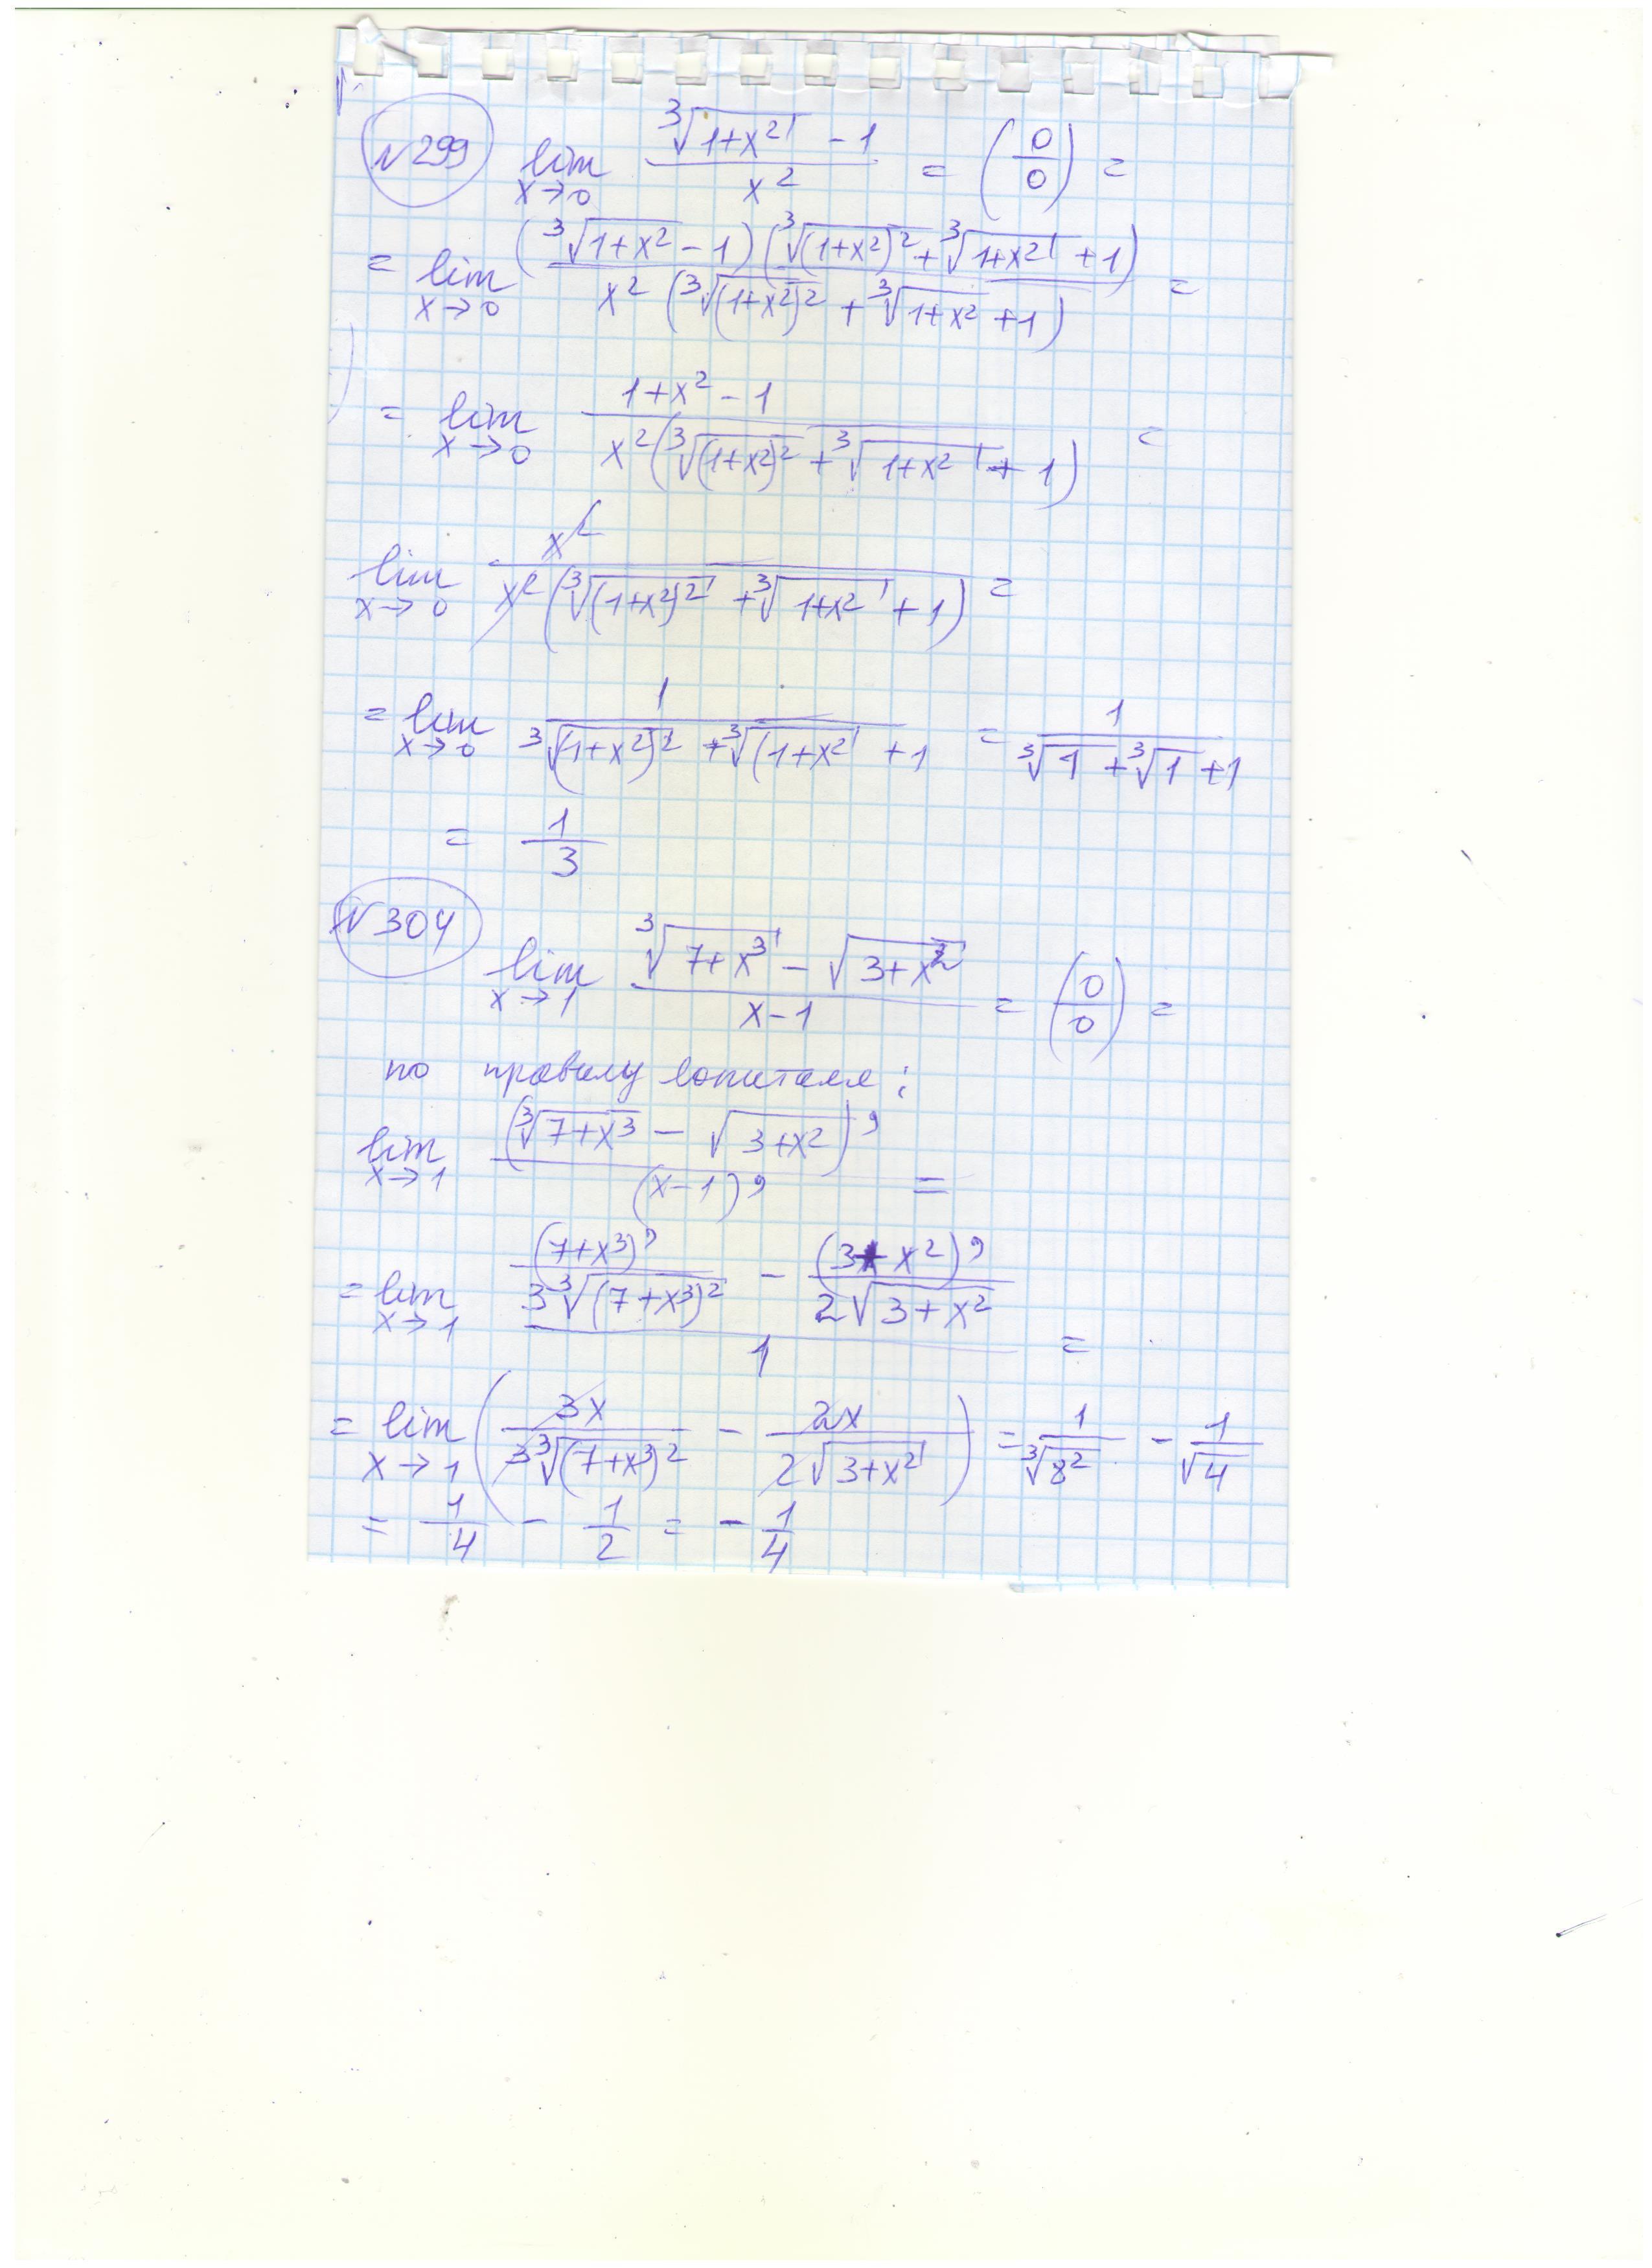 №299 lim x→0 (∛(1+x²) - 1)/x² = (0/0) =
= lim x→0 ((∛(1+x²) - 1)(∛(1+x²)² + ∛(1+x²) + 1))/(x²(∛(1+x²)² + ∛(1+x²) + 1)) =
= lim x→0 (1+x² - 1)/(x²(∛(1+x²)² + ∛(1+x²) + 1)) =
lim x→0 x²/(x²(∛(1+x²)² + ∛(1+x²) + 1)) =
= lim x→0 1/(∛(1+x²)² + ∛(1+x²) + 1) = 1/(∛1 + ∛1 + 1)
= 1/3
№304
lim x→1 (∛(7+x³) - √(3+x²))/(x-1) = (0/0) =
по правилу лопиталя:
lim x→1 (∛(7+x³) - √(3+x²))'/(x-1)' =
= lim x→1 ((7+x³)'/(3∛(7+x³)²) - (3+x²)'/(2√(3+x²)))/1 =
= lim x→1 (3x/(3∛(7+x³)²) - 2x/(2√(3+x²))) = 1/∛8² - 1/√4
= 1/4 - 1/2 = - 1/4